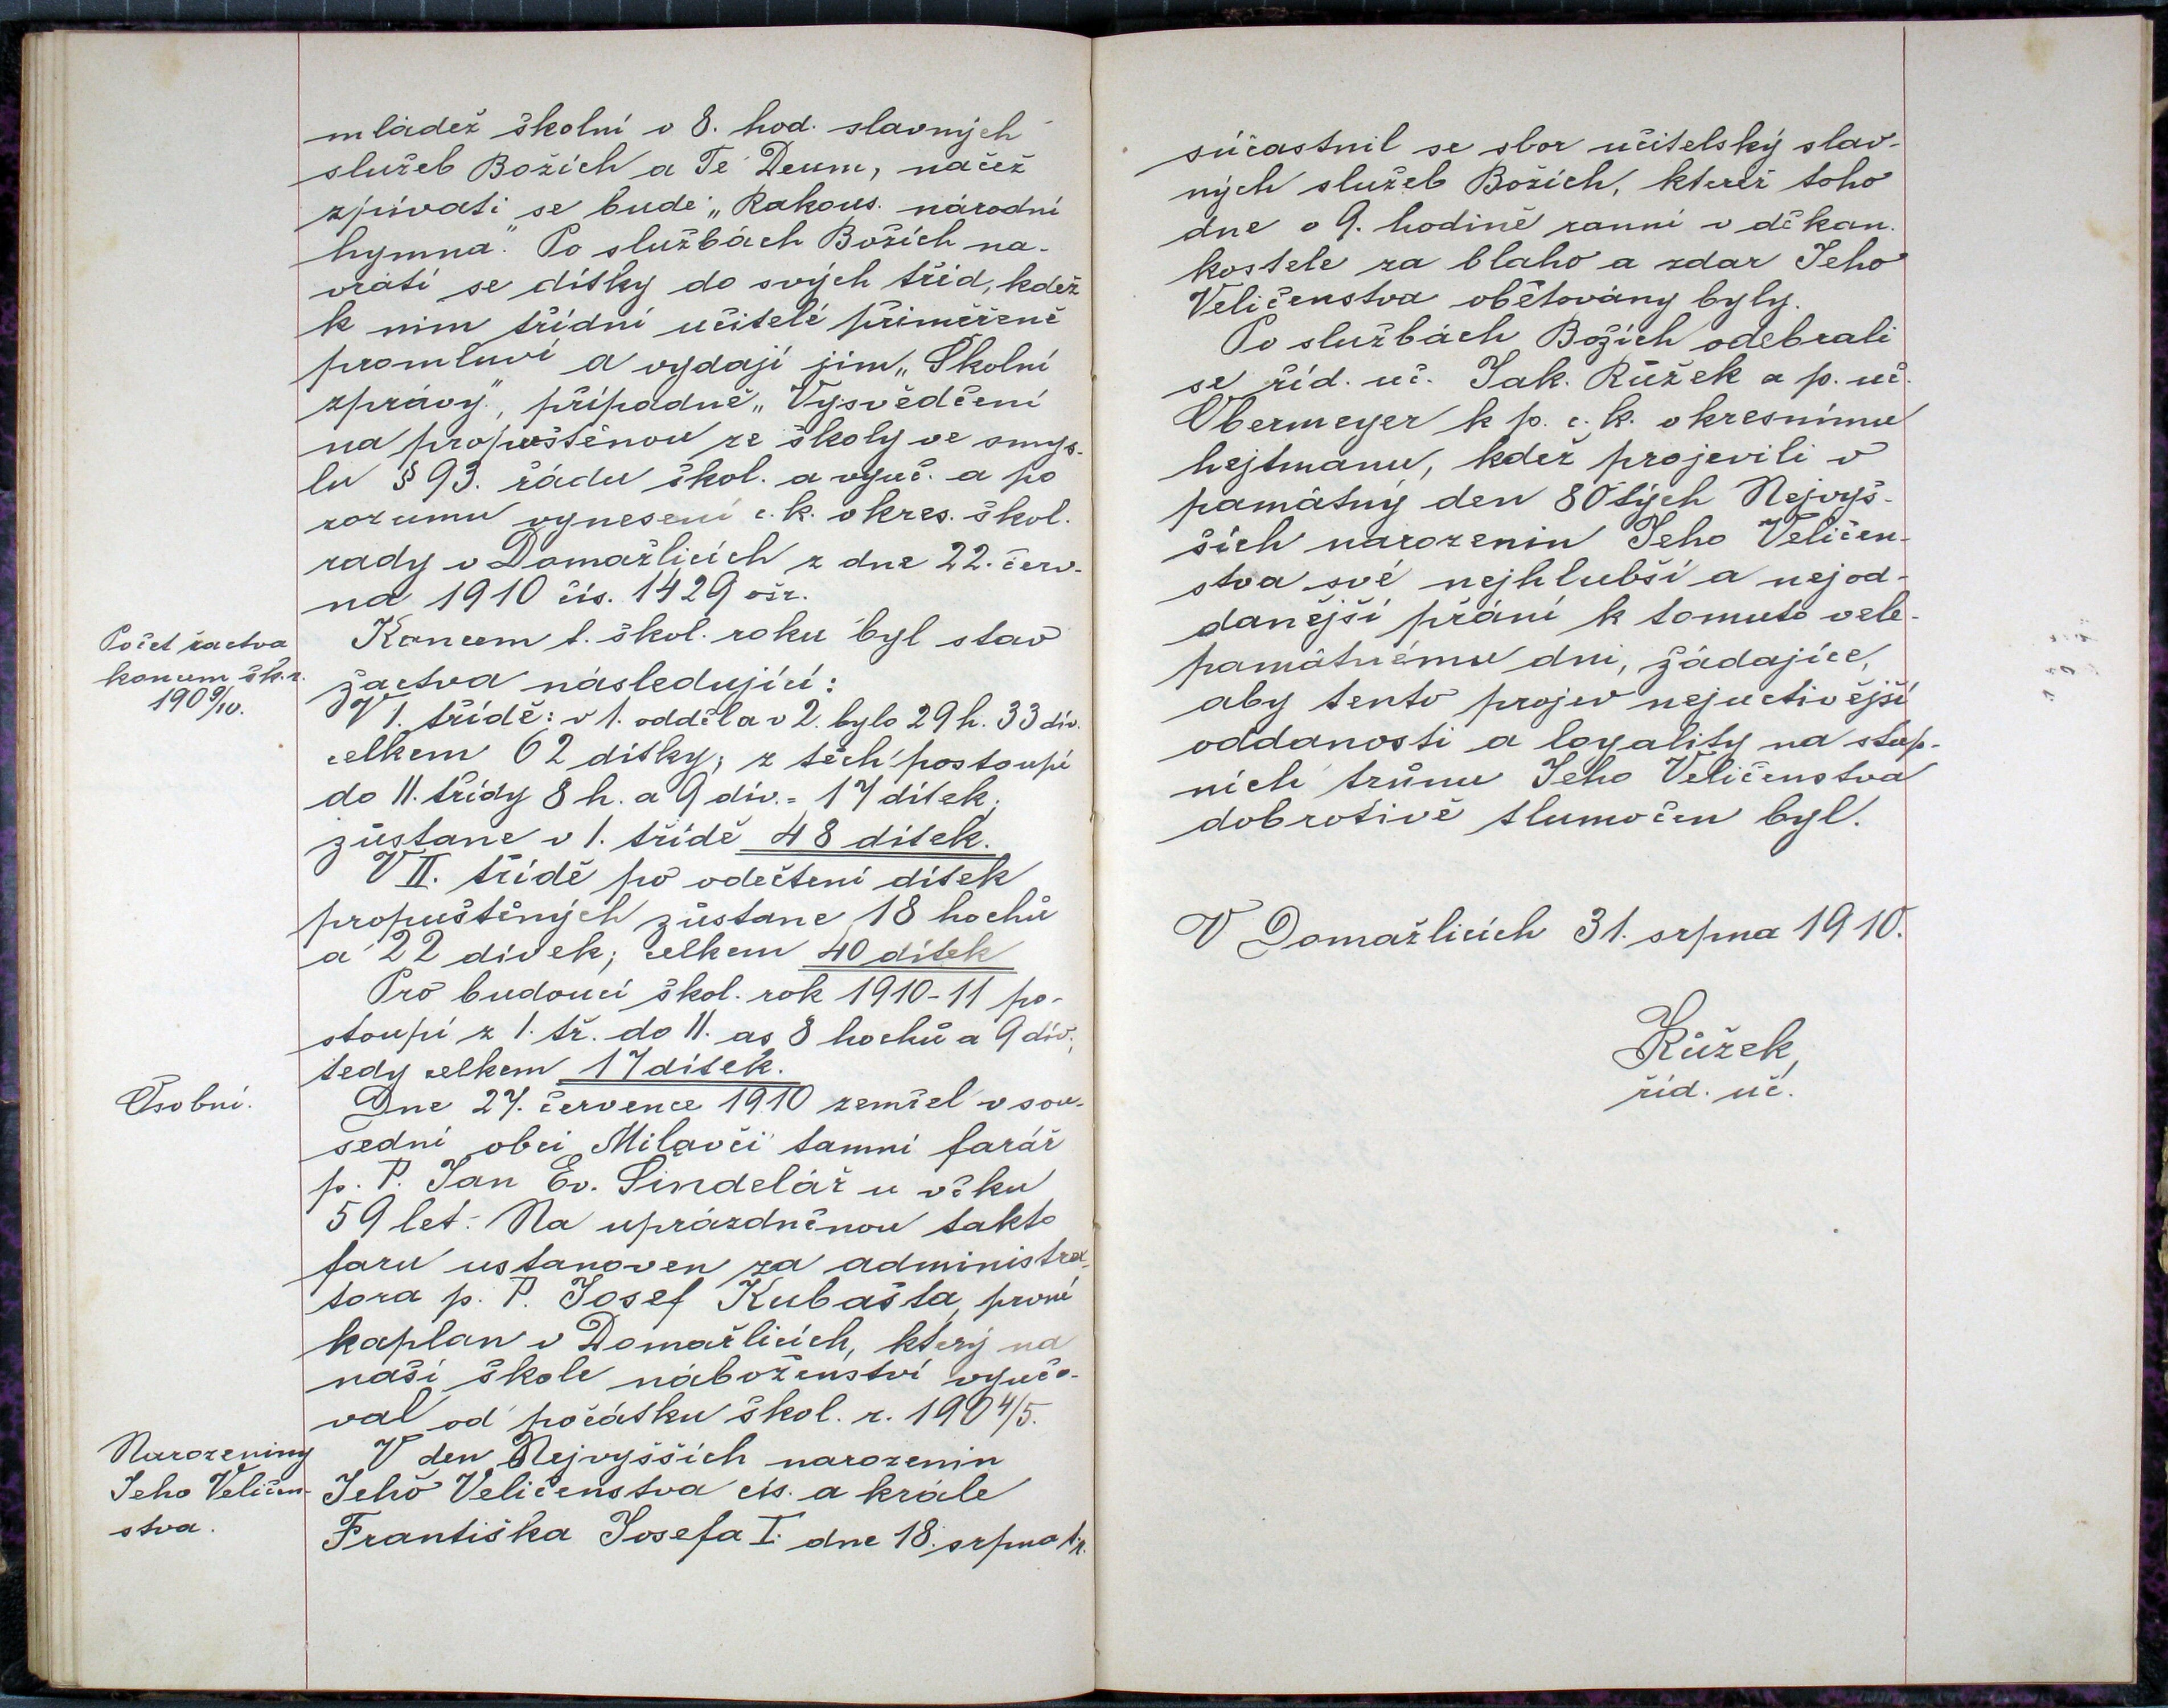 mládež školní v 8. hod. slavných
služeb Božích a Te Deum, načež
zpívati se bude „Rakous. národní
hymna“. Po službách Božích na-
vrátí se dítky do svých tříd, kdež
k nim třídní učitelé přiměřeně
promluví a vydají jim „Školní
zprávy“, případně „Vysvědčení
na propuštěnou ze školy ve smys-
lu § 93. řádu škol. a vyuč. a po
rozumu vynesení c. k. okres. škol.
rady v Domažlicích z dne 22. červ-
na 1910 čís. 1429 ošr.
Počet žactva
koncem šk. r.
1909/10.
Koncem t. škol. roku byl stav
žactva následující:
V 1. třídě: v 1. odděl a v 2. bylo 29 h. 33 dív.
celkem 62 dítky; z těch postoupí
do II. třídy 8 h. a 9 dív. = 17 dítek;
zůstane v 1. třídě 48 dítek.
V II. třídě po odečtení dítek
propuštěných zůstane 18 hochů
a 22 dívek; celkem 40 dítek
Pro budoucí škol. rok 1910-11 po-
stoupí z 1. tř. do II. as 8 hochů a 9 dív.,
tedy celkem 17 dítek.
Osobní.
Dne 27. července 1910 zemřel v sou-
sední obci Milavčí tamní farář
p. P. Jan Ev. Šindelář u věku
59 let. Na uprázdněnou takto
faru ustanoven za administra-
tora p. P. Josef Kubašta, první
kaplan v Domažlicích, který na
naší škole náboženství vyučo-
val od počátku škol. r. 1904/5.
Narozeniny
Jeho Veličen-
stva.
V den Nejvyšších narozenin
Jeho Veličenstva cís. a krále
Františka Josefa I. dne 18. srpna t. r.
súčastnil se sbor učitelský slav-
ných služeb Božích, kteréž toho
dne o 9. hodině ranní v děkan.
kostele za blaho a zdar Jeho
Veličenstva obětovány byly.
Po službách Božích odebrali
se říd. uč. Jak. Růžek a p. uč.
Obermeyer k p. c. k. okresnímu
hejtmanu, kdež projevili v
památný den 80tých Nejvyš-
ších narozenin Jeho Veličen-
stva své nejhlubší a nejod-
danější přání k tomuto vele-
památnému dni, žádajíce,
aby tento projev nejuctivější
oddanosti a loyality na stup-
ních trůnu Jeho Veličenstva
dobrotivě tlumočen byl.
V Domažlicích 31. srpna 1910.
Růžek,
říd. uč.